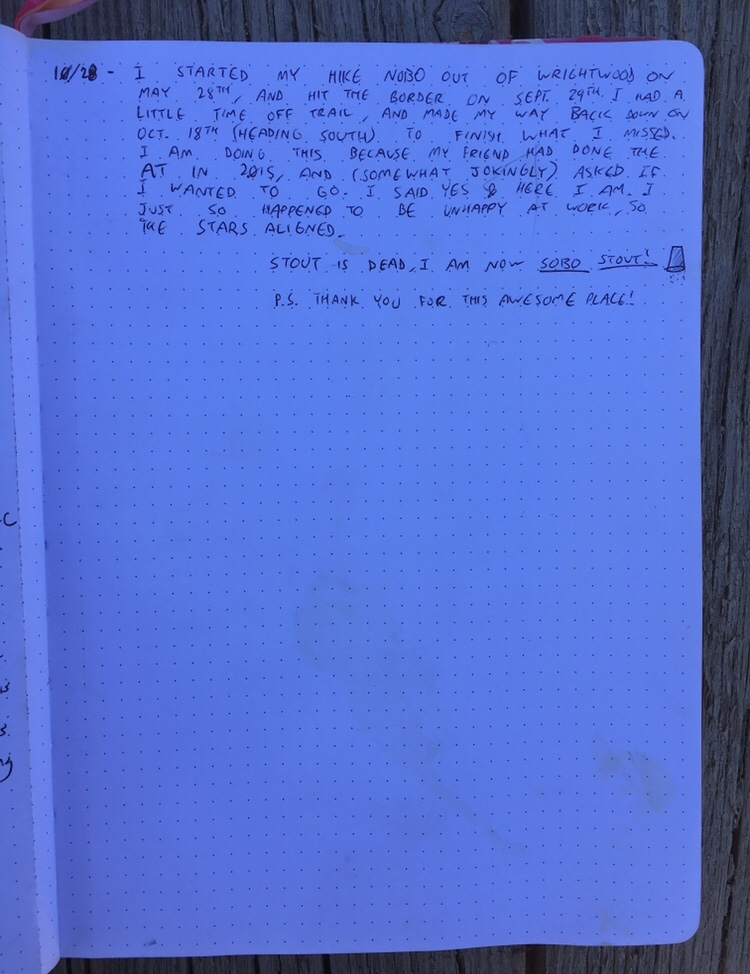 10/28 - I STARTED MY HIKE NOBO OUT OF WRIGHTWOOD ON
MAY 28TH, AND HIT THE BORDER ON SEPT. 29TH. I HAD A
LITTLE TIME OFF TRAIL, AND MADE MY WAY BACK DOWN ON
OCT. 18TH (HEADING SOUTH) TO FINISH WHAT I MISSED.
I AM DOING THIS BECAUSE MY FRIEND HAD DONE THE
AT IN 2015, AND (SOMEWHAT JOKINGLY) ASKED IF
I WANTED TO GO. I SAID YES & HERE I AM. I
JUST SO HAPPENED TO BE UNHAPPY AT WORK, SO
THE STARS ALIGNED.
STOUT IS DEAD, I AM NOW SOBO STOUT!
P.S. THANK YOU FOR THIS AWESOME PLACE!